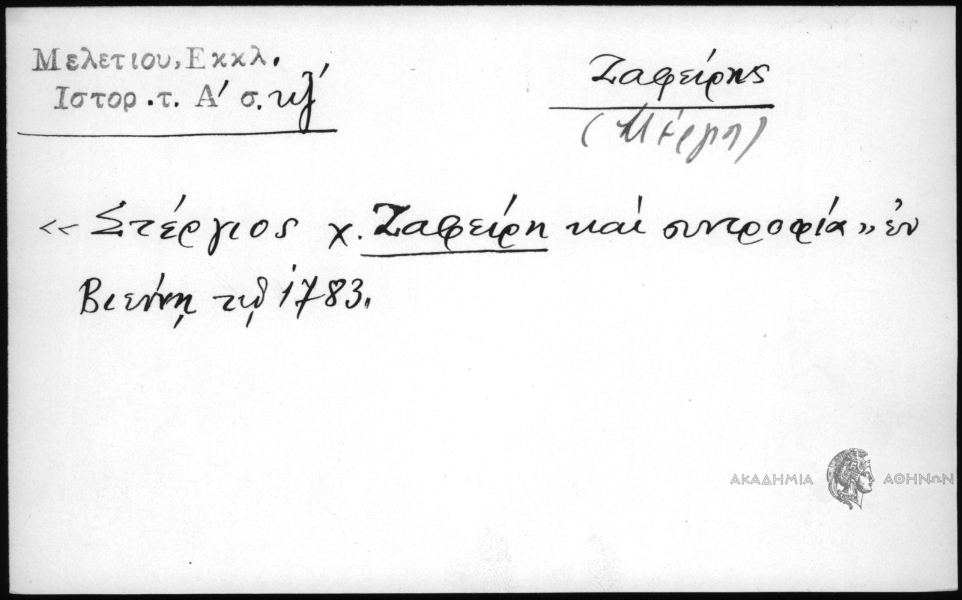 Μελετιου, Εκκλ.
Ιστορ. τ. Α' σ. κζ'
Ζαφείρης
(Μέργη)
«Στέργιος χ. Ζαφείρη και συντροφία» ἐν
Βιέννῃ τῷ 1783.
ΑΚΑΔΗΜΙΑ ΑΘΗΝΩΝ